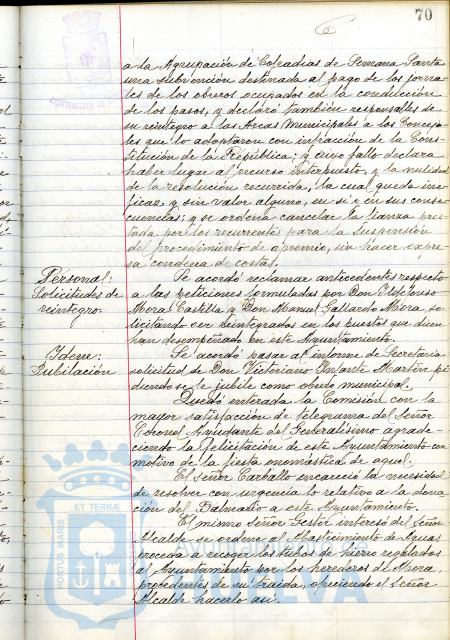 70
a la Agrupación de Cofradias de Semana Santa
una subvención destinada al pago de los jorna-
les de los obreros ocupados en la conducción
de los pasos, y declaró también responsables de
su reintegro a las Arcas Municipales a los Conceja-
les que lo adoptaron con infracción de la Cons-
titución de la República; y cuyo fallo declara
haber lugar al recurso interpuesto, y la nulidad
de la resolución recurrida, la cual queda ine-
ficaz y sin valor alguno, en sí y en sus conse-
cuencias; y se ordena cancelar la fianza pres-
tada por los recurrentes para la suspensión
del procedimiento de apremio, sin hacer expre-
sa condena de costas.
Personal:
Solicitudes de
reintegro.
Se acordó reclamar antecedentes respecto
a las peticiones formuladas por Don Ildefonso
Mora Castilla y Don Manuel Gallardo Mora, so-
licitando ser reintegrados en los puestos que dicen
han desempeñado en este Ayuntamiento.
Idem:
Jubilación
Se acordó pasar al informe de Secretaría
solicitud de Don Victoriano Infante Martín pi-
diendo se le jubile como obrero municipal.
Quedó enterada la Comisión con la
mayor satisfacción de telegrama del Señor
Coronel Ayudante del Generalísimo agrade-
ciendo la felicitación de este Ayuntamiento con
motivo de la fiesta onomástica de aquel.
El Señor Carballo encareció la necesidad
de resolver con urgencia lo relativo a la dona-
ción del Balneario a este Ayuntamiento.
El mismo Señor Gestor interesó del Señor
Alcalde se ordene al Abastecimiento de Aguas
proceda a recoger los tubos de hierro regalados
al Ayuntamiento por los herederos de Mora,
procedentes de su traida, ofreciendo el Señor
Alcalde hacerlo así.
ET TERRA
PORTUS MARIS